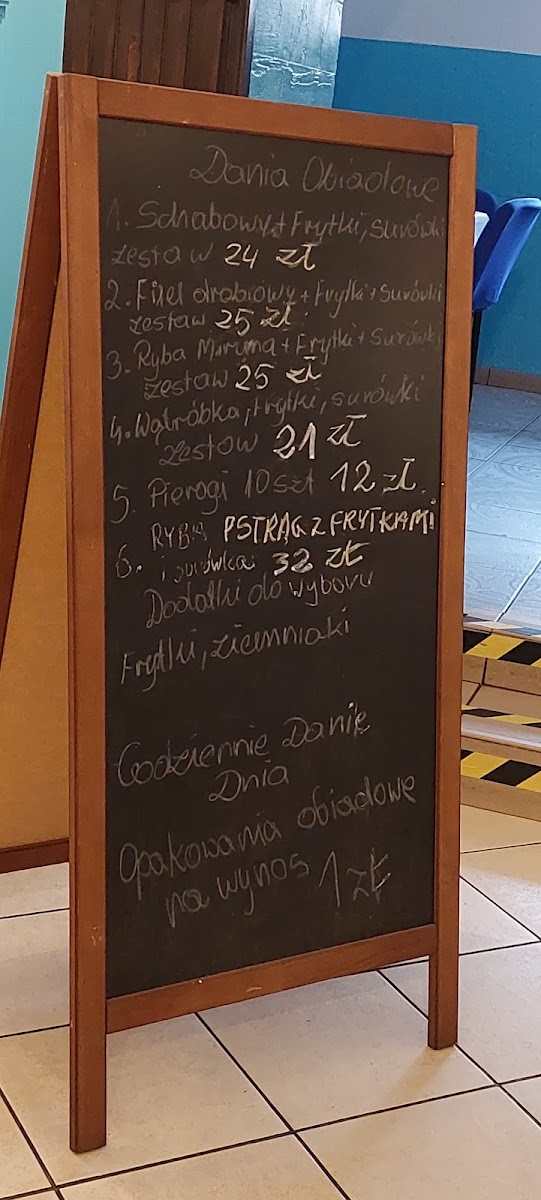 Dania Obiadowe
1. Schabowy + Frytki, surówki
zestaw 24 zł
2. Filel drobiowy + frytki + surówki
zestaw 25 zł
3. Ryba Miruna + Frytki + Surówki
zestaw 25 zł
4. Wątróbka, frytki, surówki
zestaw 21 zł
5. Pierogi 10 szt 12 zł
6. RYBA PSTRĄG Z FRYTKAMI
i surówka 32 zł
Dodatki do wyboru
Frytki, ziemniaki
Codziennie Danie
Dnia
Opakowania obiadowe
na wynos 1 zł